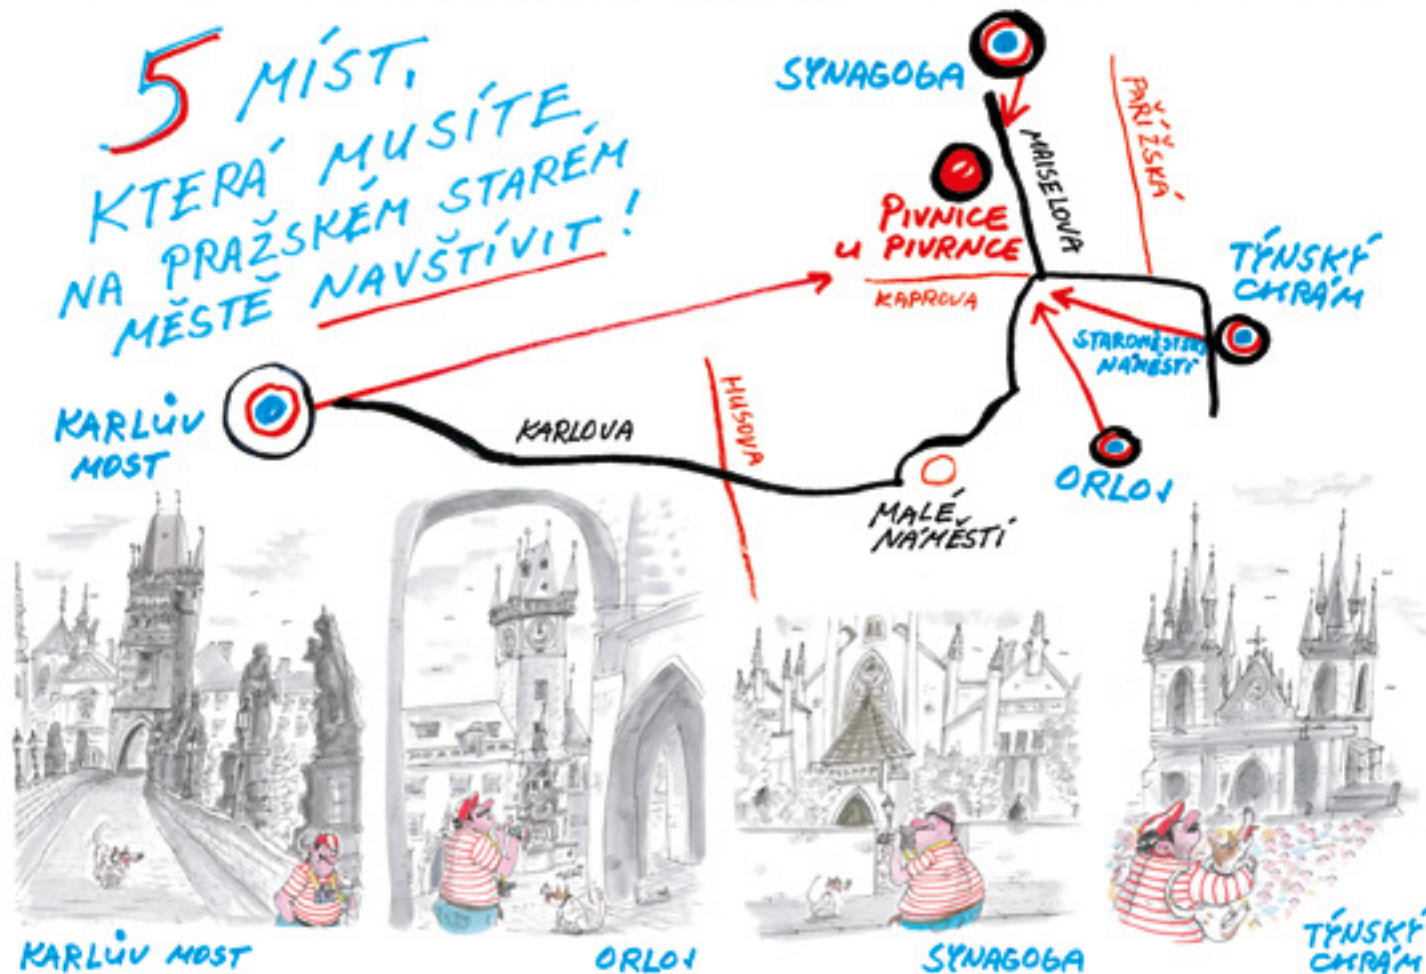 5 MÍST,
KTERÁ MUSÍTE
NA PRAŽSKÉM STARÉM
MĚSTĚ NAVŠTÍVIT!
SYNAGOGA
PAŘÍŽSKÁ
MAISELOVA
PIVNICE
U PIVRNCE
KAPROVA
TÝNSKÝ
CHRÁM
STAROMĚSTSKÉ
NÁMĚSTÍ
KARLŮV
MOST
KARLOVA
HUSOVA
ORLOJ
MALÉ
NÁMĚSTÍ
KARLŮV MOST
ORLOJ
SYNAGOGA
TÝNSKÝ
CHRÁM